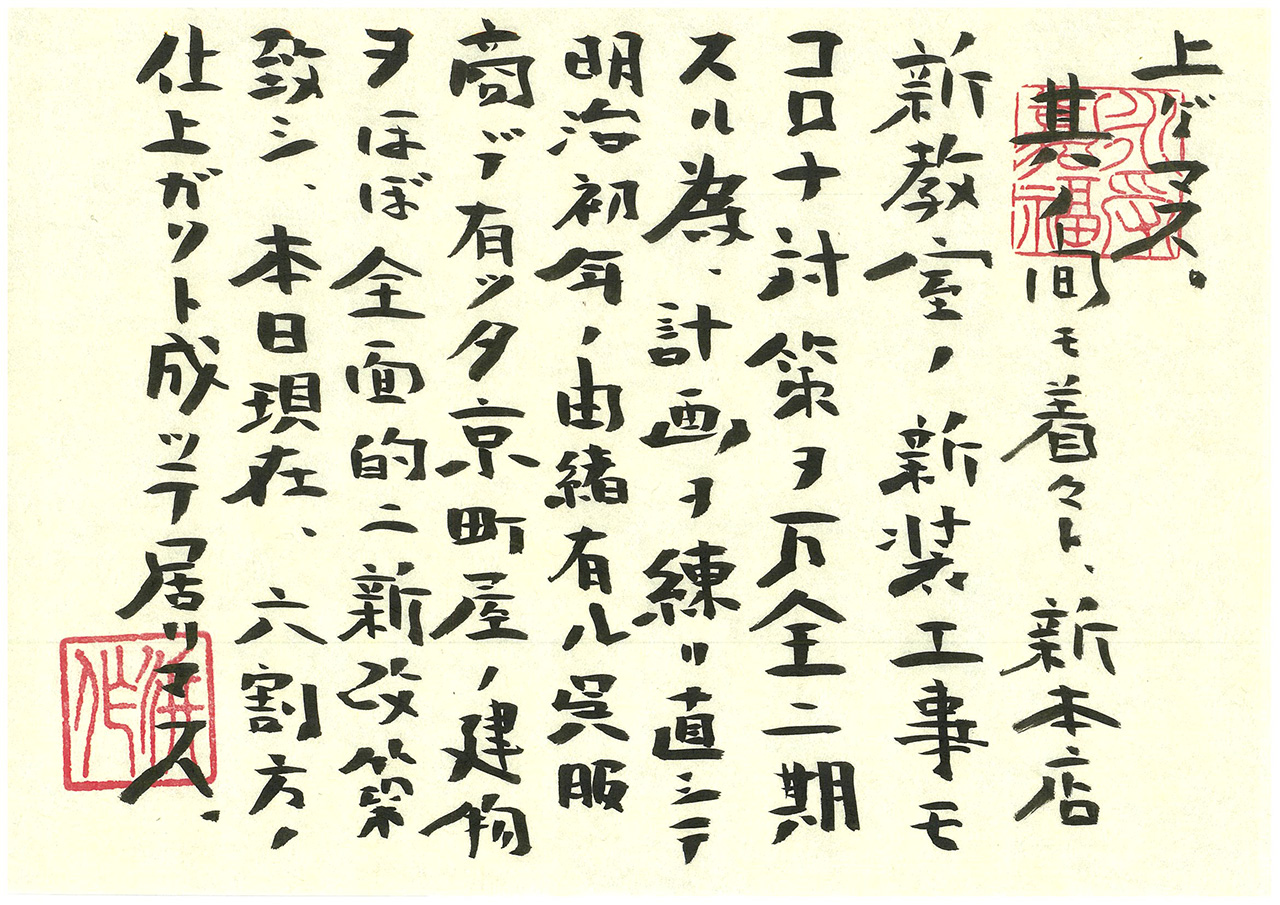 上ゲマス。
其ノ間モ着々ト、新本店
新教室ノ新装工事モ
コロナ対策ヲ万全ニ期
スル為、計画ヲ練リ直シテ
明治初年ノ由緒有ル呉服
商デ有ッタ京町屋ノ建物
ヲほぼ全面的ニ新改築
致シ、本日現在、六割方ノ
仕上ガリト成ッテ居リマス。